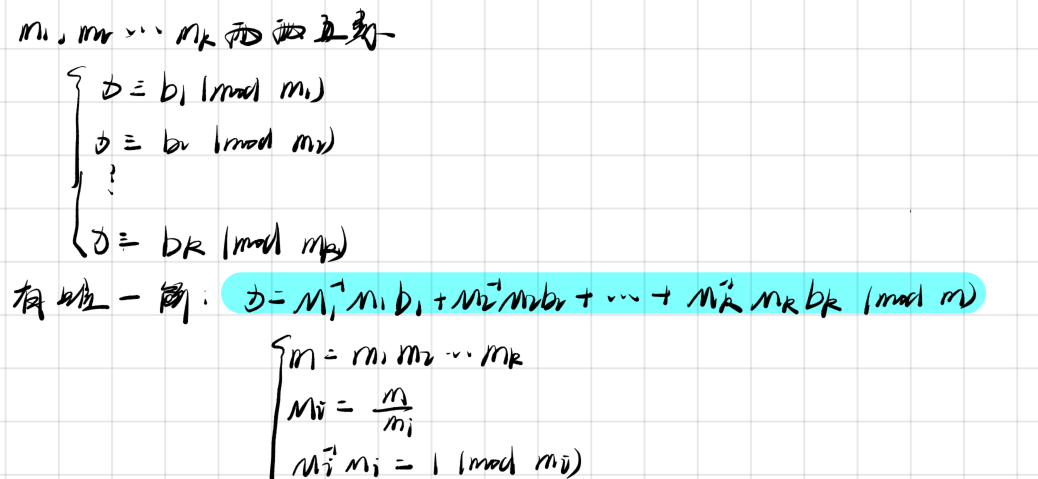 m₁, m₂ ⋯ mₖ 两两互素
x ≡ b₁ (mod m₁)
x ≡ b₂ (mod m₂)
⋮
x ≡ bₖ (mod mₖ)
有唯一解: x = M₁⁻¹M₁b₁ + M₂⁻¹M₂b₂ + ⋯ + Mₖ⁻¹Mₖbₖ (mod m)
m = m₁m₂ ⋯ mₖ
Mᵢ = m/mᵢ
Mᵢ⁻¹Mᵢ = 1 (mod mᵢ)